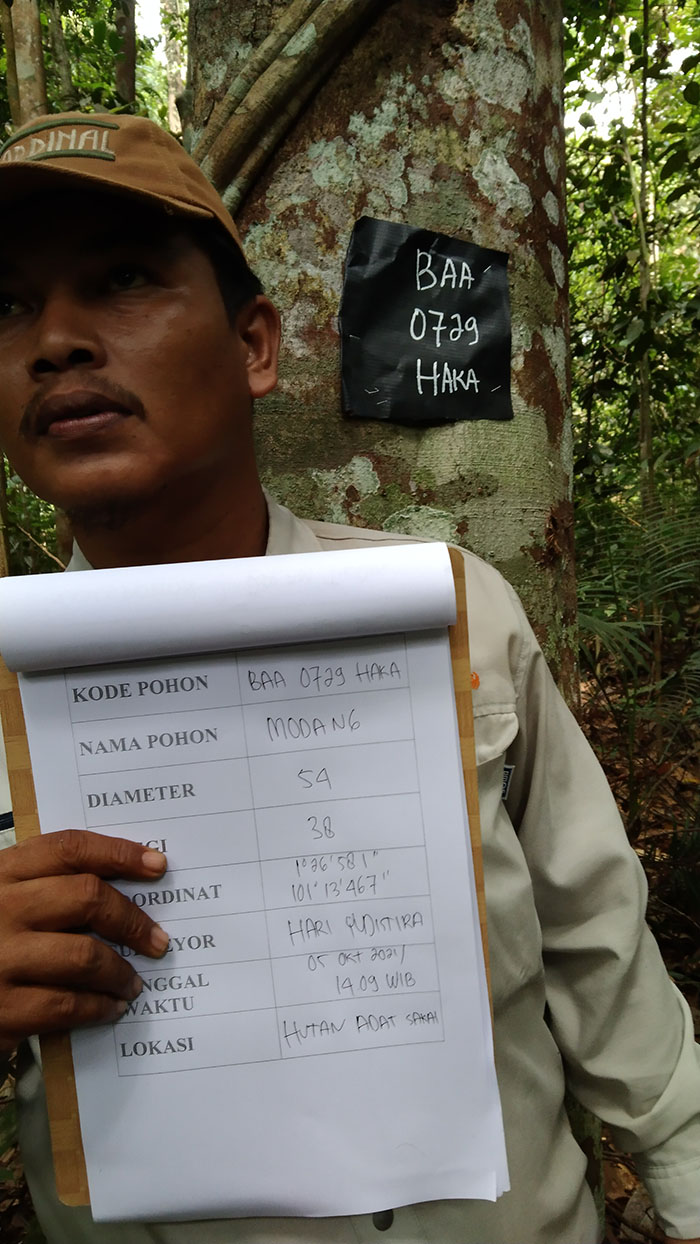 CARDINAL
BAA
0729
HAKA
KODE POHON BAA 0729 HAKA
NAMA POHON MODANG
DIAMETER 54
GI 38
ORDINAT 1°26'581"
101°13'467"
YOR HARI YUDISTIRA
NGGAL 05 OKT 2021/
WAKTU 14 09 WIB
LOKASI HUTAN ADAT SAKAI